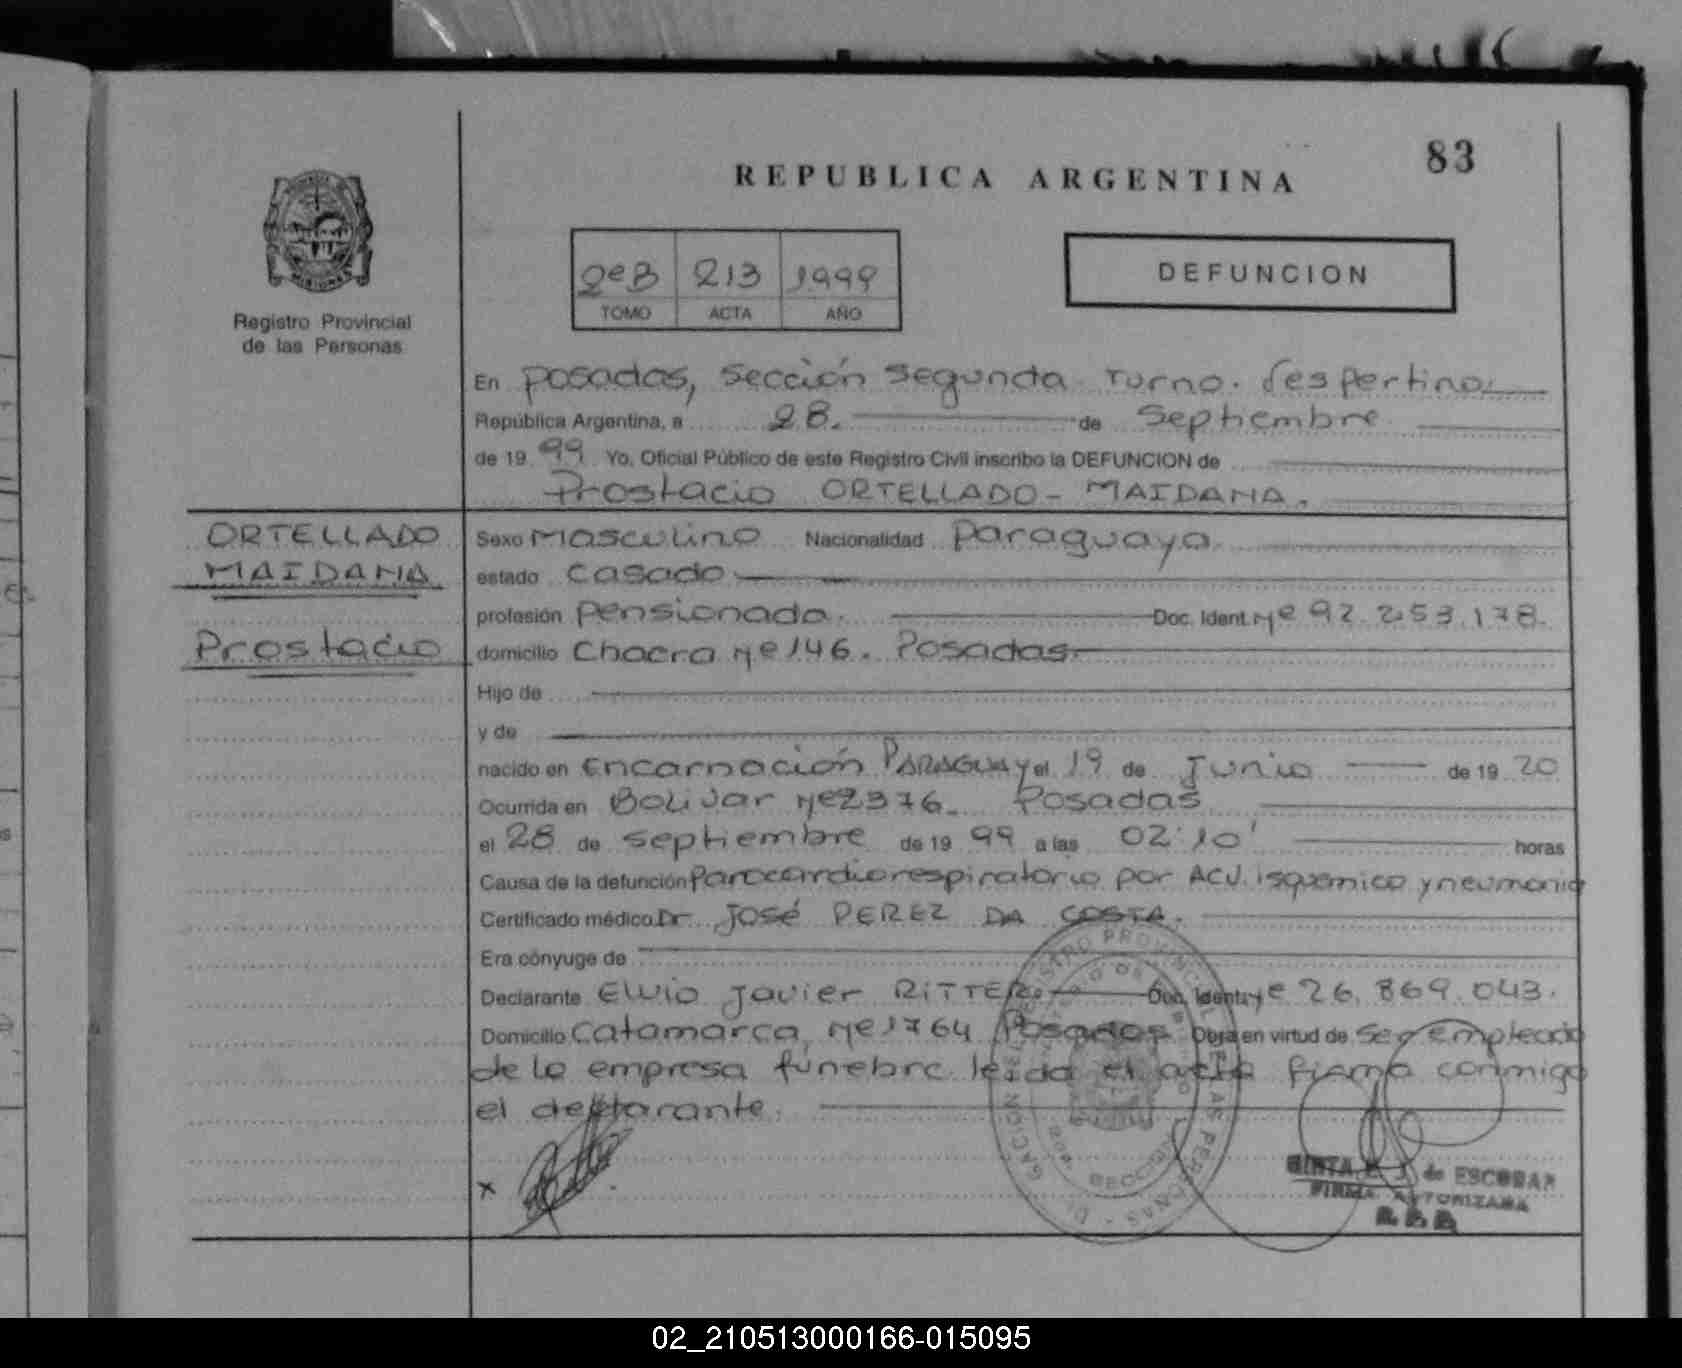 83
REPUBLICA ARGENTINA
2ºB 213 1999
TOMO ACTA AÑO
DEFUNCION
Registro Provincial
de las Personas
En Posadas, sección segunda turno vespertino.
República Argentina, a 28. de Septiembre
de 19 99 Yo, Oficial Público de este Registro Civil inscribo la DEFUNCION de
Prostacio ORTELLADO - MAIDANA.
ORTELLADO
MAIDANA
Prostacio
Sexo Masculino Nacionalidad Paraguaya
estado casado
profesión Pensionado. Doc. Ident. Nº 92.253.178.
domicilio Chacra Nº 146. Posadas.
Hijo de
y de
nacido en Encarnación PARAGUAY el 19 de Junio de 19 20
Ocurrida en Bolivar Nº 2376. Posadas
el 28 de septiembre de 19 99 a las 02:10' horas
Causa de la defunción Parocardiorespiratorio por ACV. isquemico y neumonia
Certificado médico Dr José PEREZ DA COSTA.
Era cónyuge de
Declarante Elvio Javier RITTER. Doc. Ident. Nº 26.869.043.
Domicilio Catamarca Nº 1764 Posadas Obra en virtud de ser empleado
de la empresa fúnebre leída el acta firma conmigo
el declarante.
x
de ESCOBAR
FIRMA AUTORIZADA
02_210513000166-015095